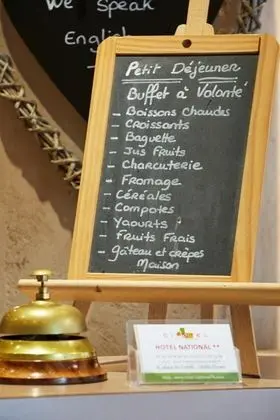 We Speak
English
Petit Déjeuner
Buffet à Volonté
- Boissons Chaudes
- Croissants
- Baguette
- Jus Fruits
- Charcuterie
- Fromage
- Céréales
- Compotes
- Yaourts
- Fruits Frais
- Gâteau et crêpes
Maison
HOTEL NATIONAL**